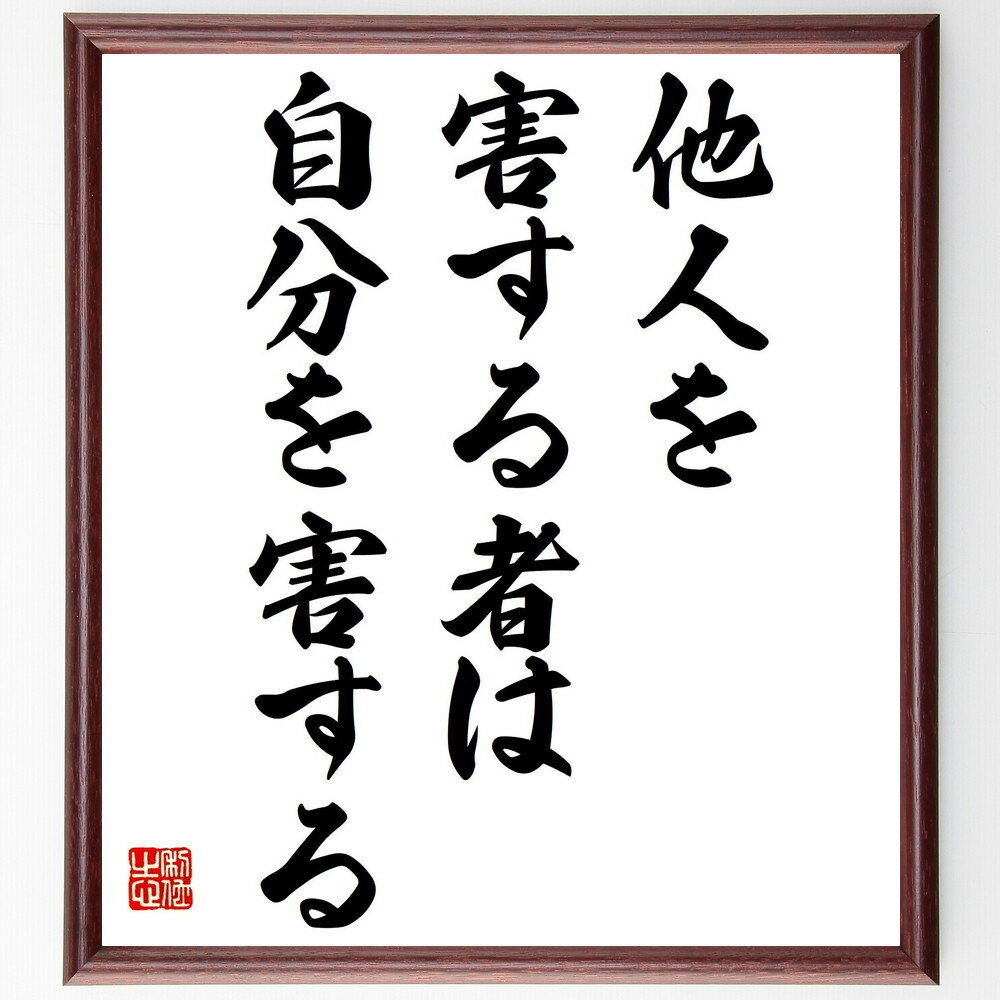 他人を
害する者は
自分を害する